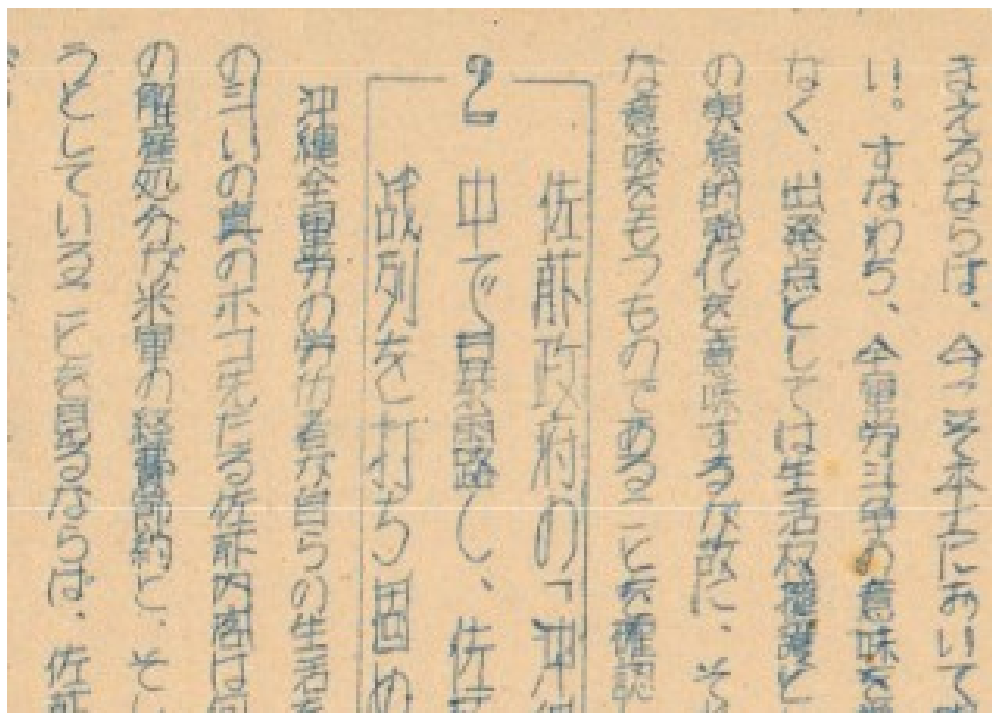 まえるならば、今こそ本土において
い。すなわち、全軍労斗争の意味を
なく、出発点としては生活权擁護と
の質的強化を意味するが故に、それ
な意味をもつものであることを確認
2
佐藤政府の「沖縄
中で暴露し、佐
战列を打ち固め
沖縄全軍労の労仂者が自らの生活を
の斗いの真のホコ先たる佐藤内閣は何
の解雇処分が米軍の経費節約と、そ
うとしていることを見るならば、佐藤